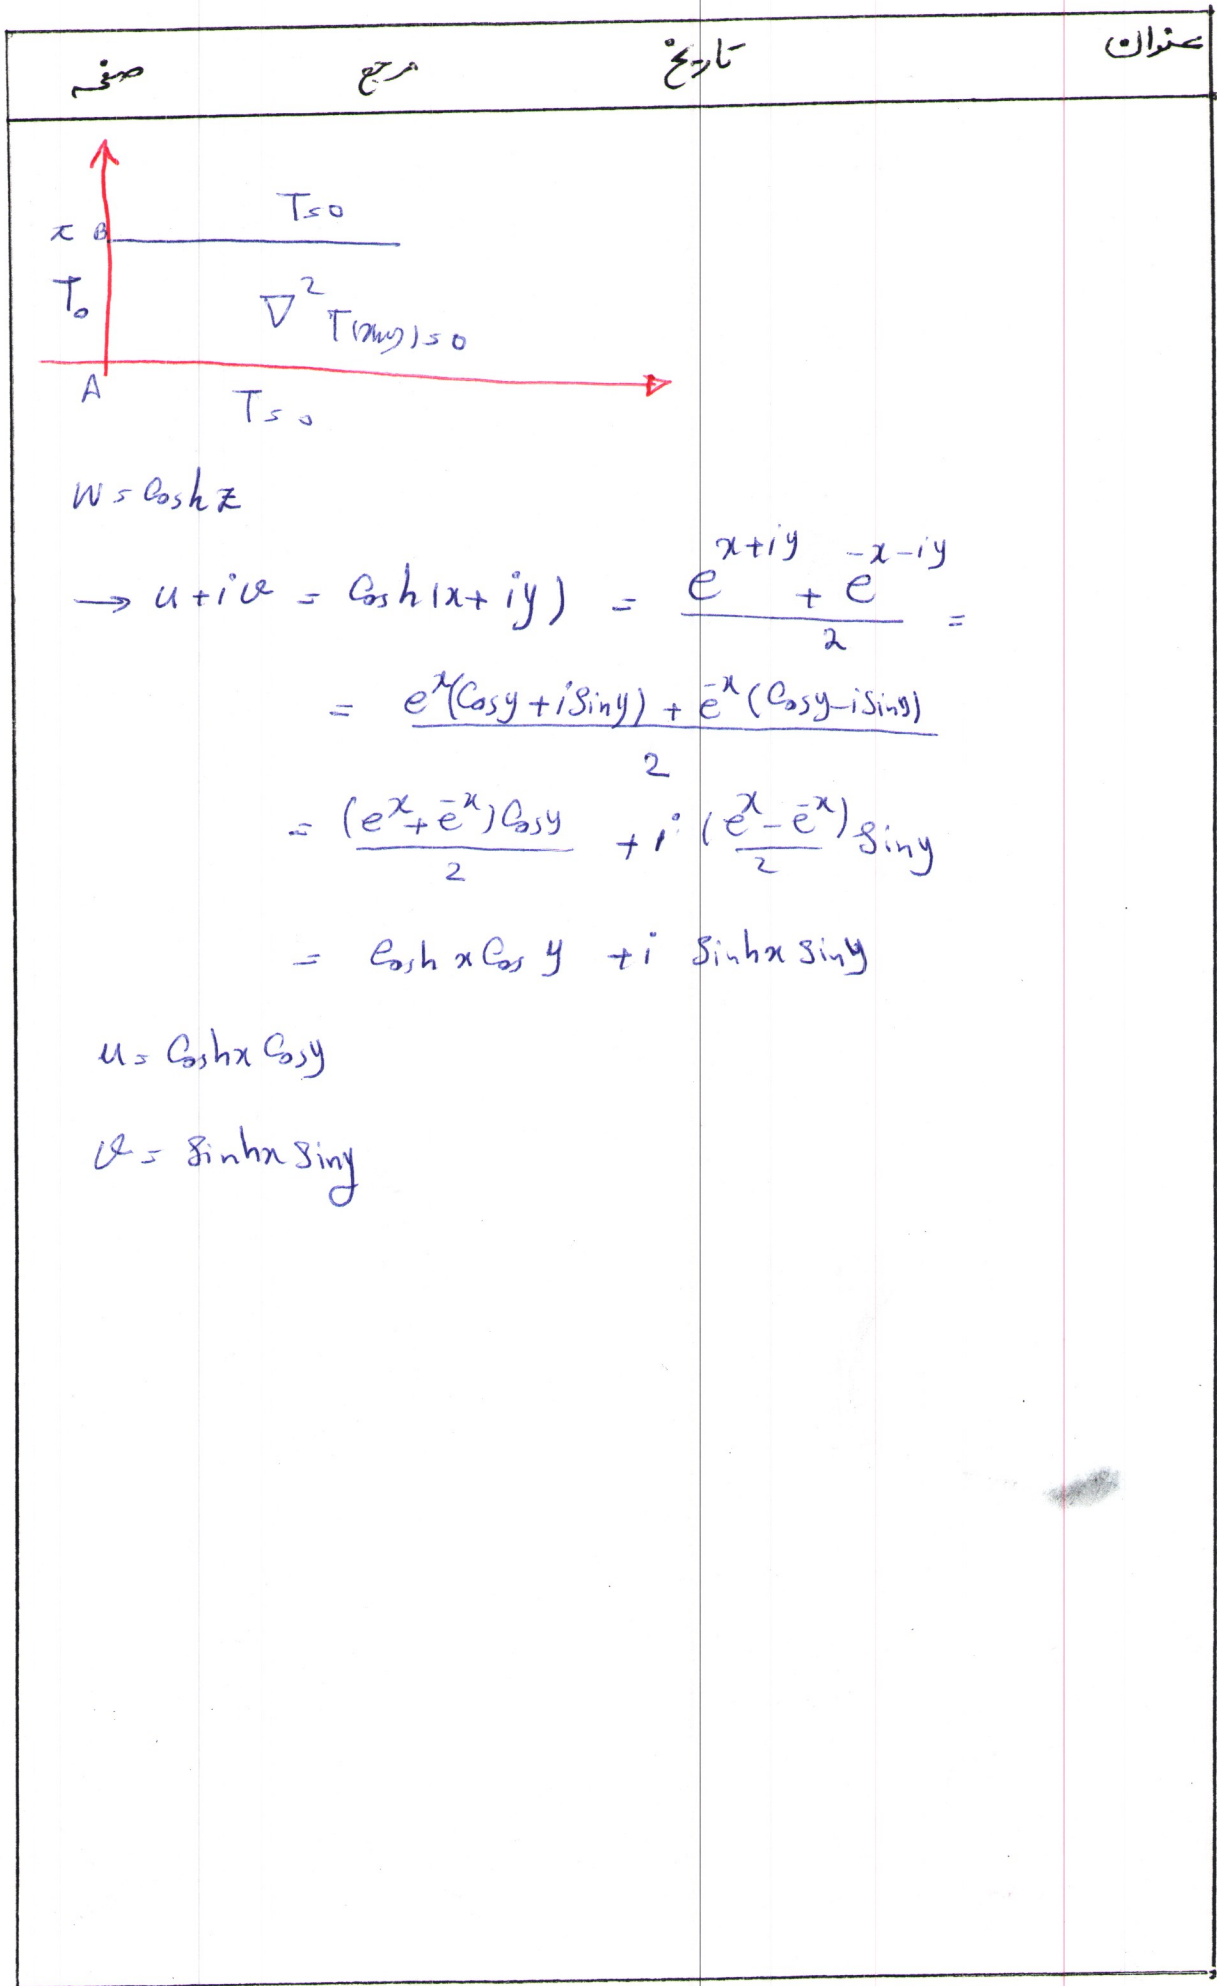 عنوان تاریخ مرجع صفحه
T=0
π B
T₀
∇² T(x,y)=0
A
T=0
w = Cosh z
→ u+iv = Cosh(x+iy) = (e^{x+iy} + e^{-x-iy})/2 =
= (e^x(Cosy+iSiny) + e^{-x}(Cosy-iSiny))/2
= (e^x+e^{-x})Cosy/2 + i (e^x-e^{-x})/2 Siny
= Cosh x Cos y + i Sinhx Siny
u = Coshx Cosy
v = Sinhx Siny